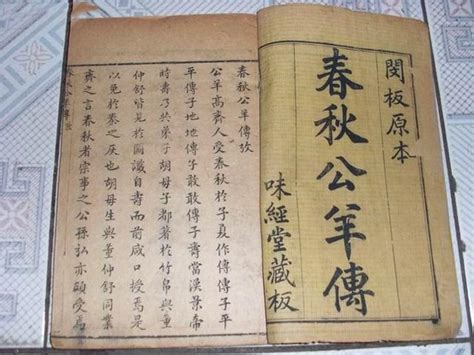 閔板原本
春秋公羊傳
味經堂藏板
春秋公羊傳攷
公羊高齊人受春秋於子夏作傳傳子平
平傳子地地傳子敢敢傳子壽當漢景帝
時壽乃於弟子胡母子都著於竹帛與董
仲舒皆見於圖讖自書而前咸口授焉是
以免於秦之灰也胡母生與董仲舒同業
齊之言春秋者宗事之公孫弘亦頗受焉